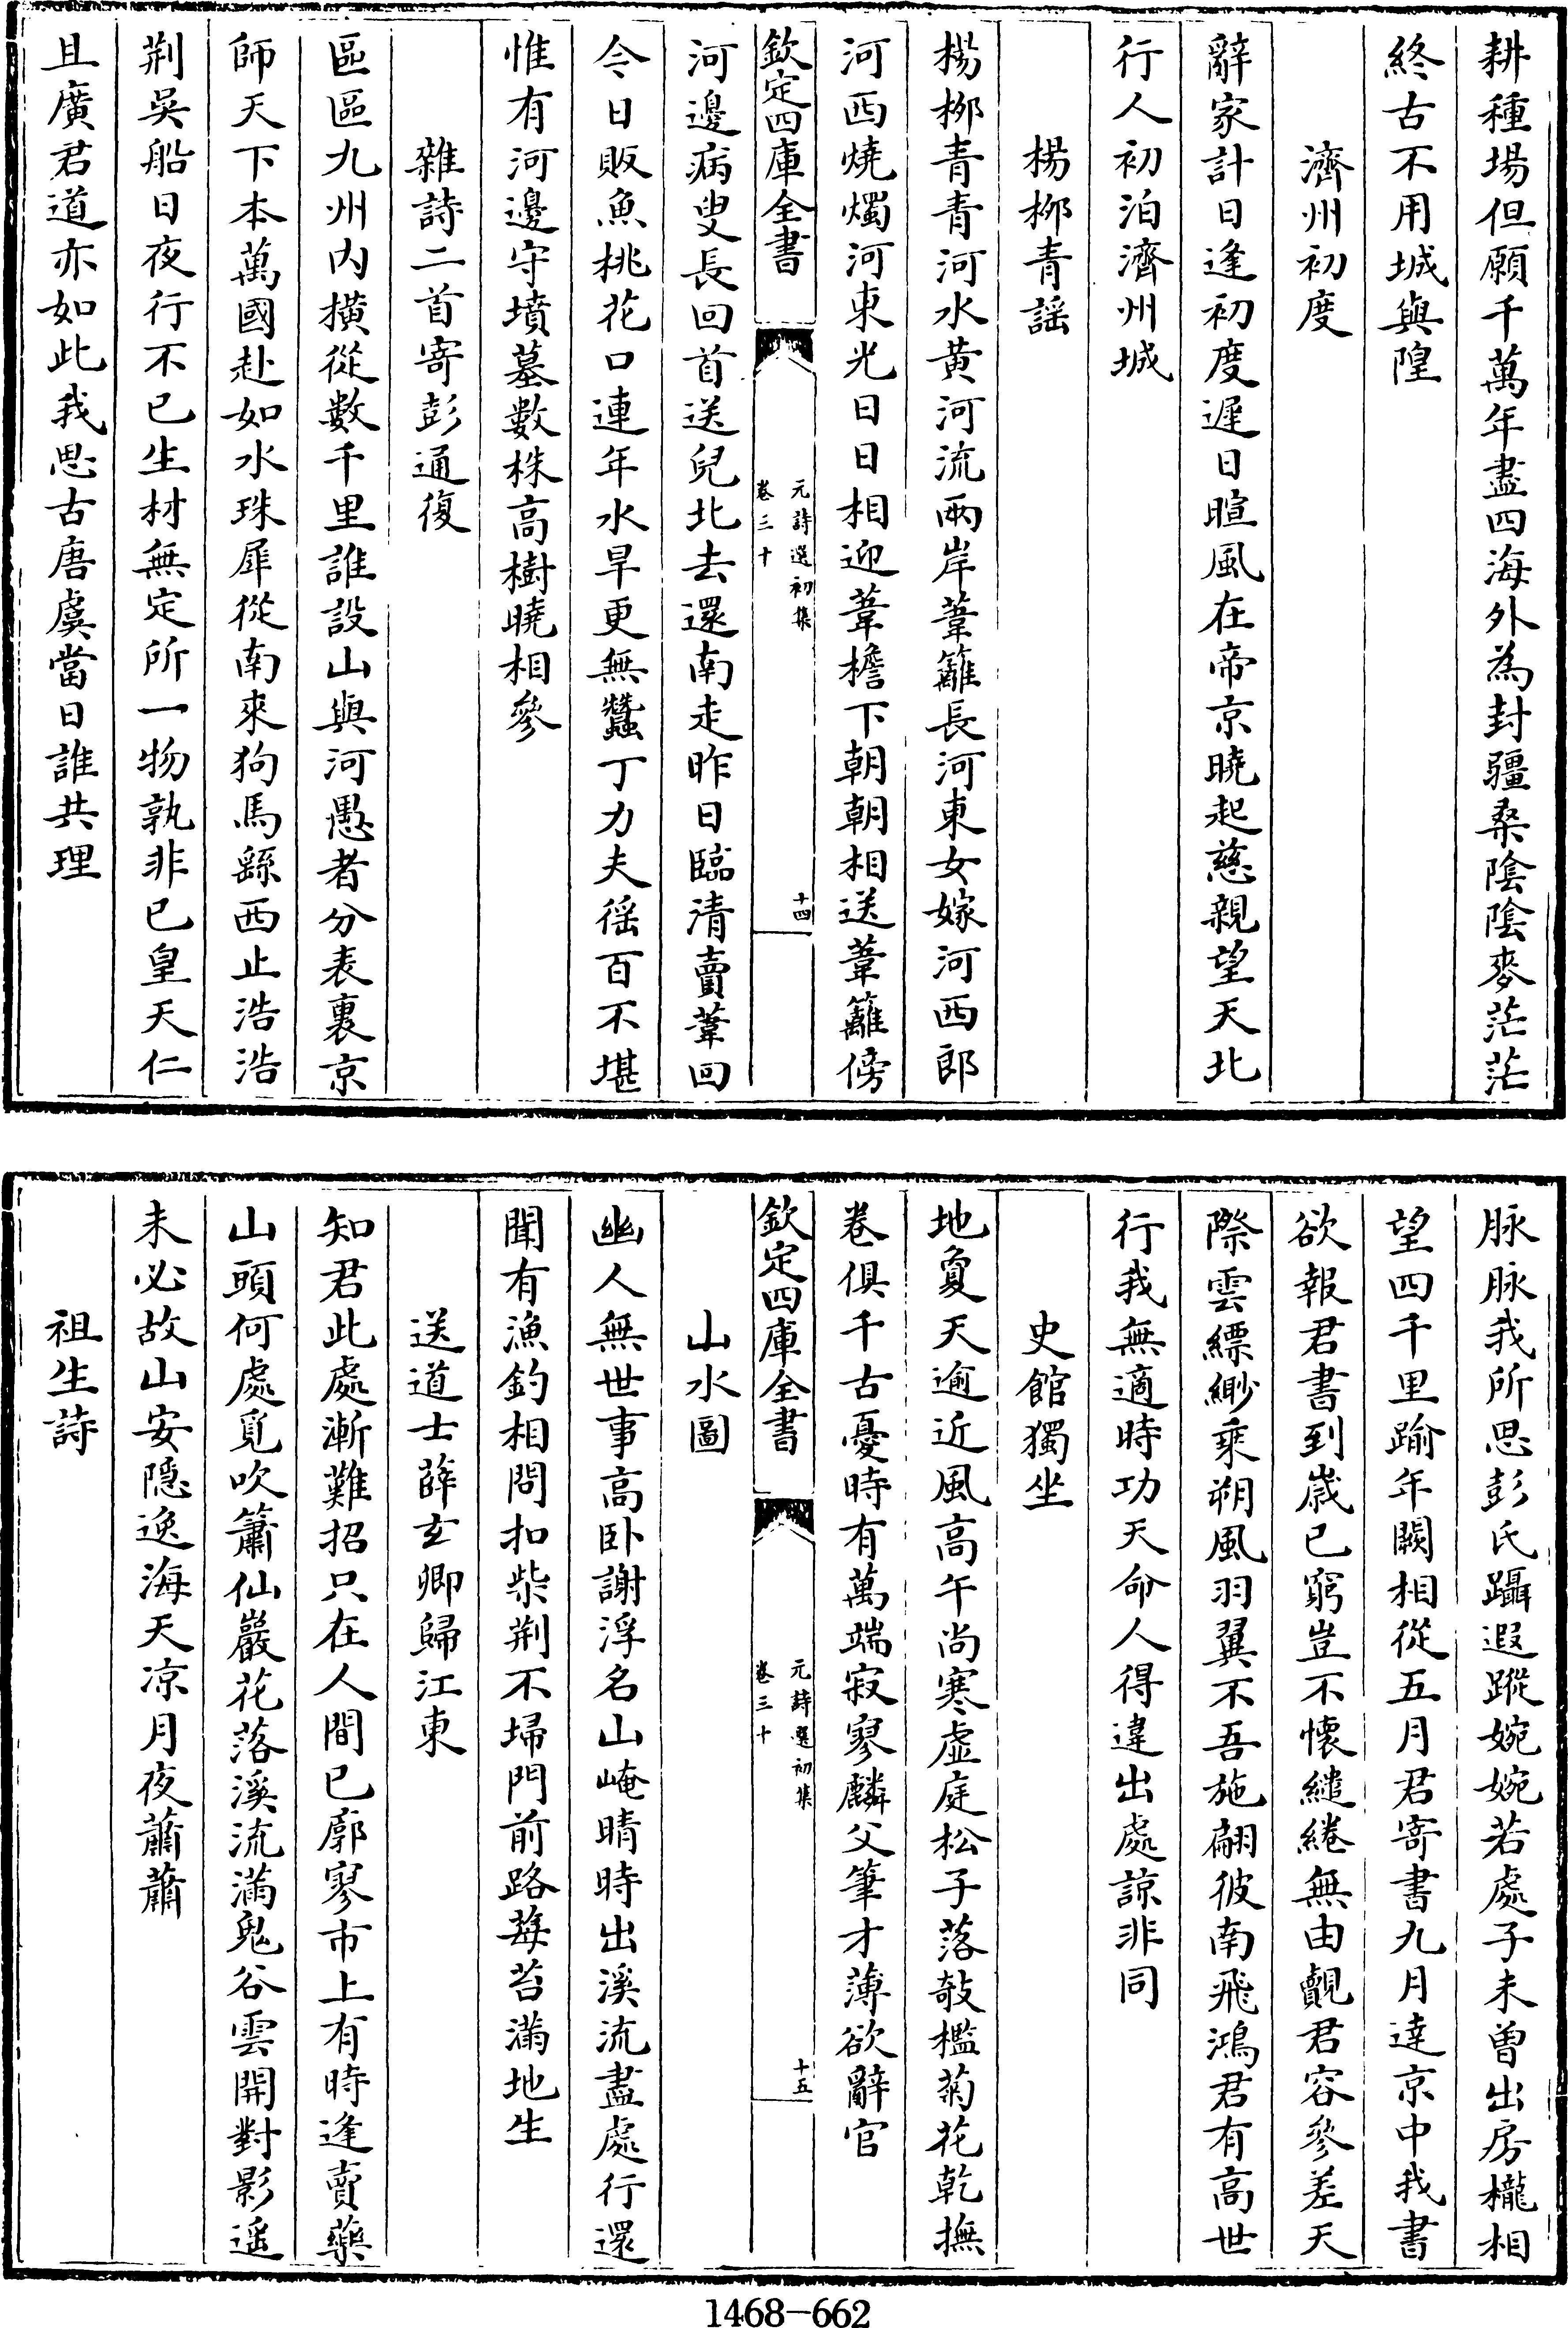 耕種場但願千萬年盡四海外為封疆桑陰陰麥茫茫
終古不用城與隍
濟州初度
辭家計日逢初度遲日暄風在帝京曉起慈親望天北
行人初泊濟州城
楊栁青謡
楊栁青青河水黄河流兩岸葦籬長河東女嫁河西郎
河西燒燭河東光日日相迎葦檐下朝朝相送葦籬傍
欽定四庫全書
元詩選初集
卷三十
十四
河邊病叟長回首送兒北去還南走昨日臨清賣葦回
今日販魚桃花口連年水旱更無蠶丁力夫徭百不堪
惟有河邊守墳墓數株高樹曉相參
雜詩二首寄彭通復
區區九州内横從數千里誰設山與河愚者分表裏京
師天下本萬國赴如水珠犀從南來狗馬繇西止浩浩
荆吳船日夜行不已生材無定所一物孰非已皇天仁
且廣君道亦如此我思古唐虞當日誰共理
脉脉我所思彭氏躡遐蹤婉婉若處子未曽出房櫳相
望四千里踰年闕相從五月君寄書九月達京中我書
欲報君書到歲已窮豈不懷繾綣無由覿君容參差天
際雲縹緲乘朔風羽翼不吾施翩彼南飛鴻君有高世
行我無適時功天命人得違出處諒非同
史館獨坐
地夐天逾近風高午尚寒虚庭松子落敧檻菊花乾撫
卷俱千古憂時有萬端寂寥麟父筆才薄欲辭官
欽定四庫全書
元詩選初集
卷三十
十五
山水圖
幽人無世事高卧謝浮名山崦晴時出溪流盡處行還
聞有漁釣相問扣柴荆不埽門前路莓苔滿地生
送道士薛玄卿歸江東
知君此處漸難招只在人間已廓寥市上有時逢賣藥
山頭何處覓吹簫仙巖花落溪流滿鬼谷雲開對影遥
未必故山安隱逸海天凉月夜蕭蕭
祖生詩
1468-662